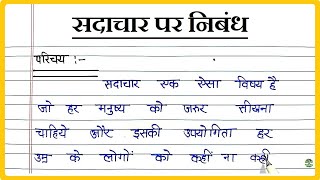 सदाचार पर निबंध
परिचय :-
सदाचार एक ऐसा विषय है
जो हर मनुष्य को जरुर सीखना
चाहिये और इसकी उपयोगिता हर
उम्र के लोगों को कहीं ना कहीं